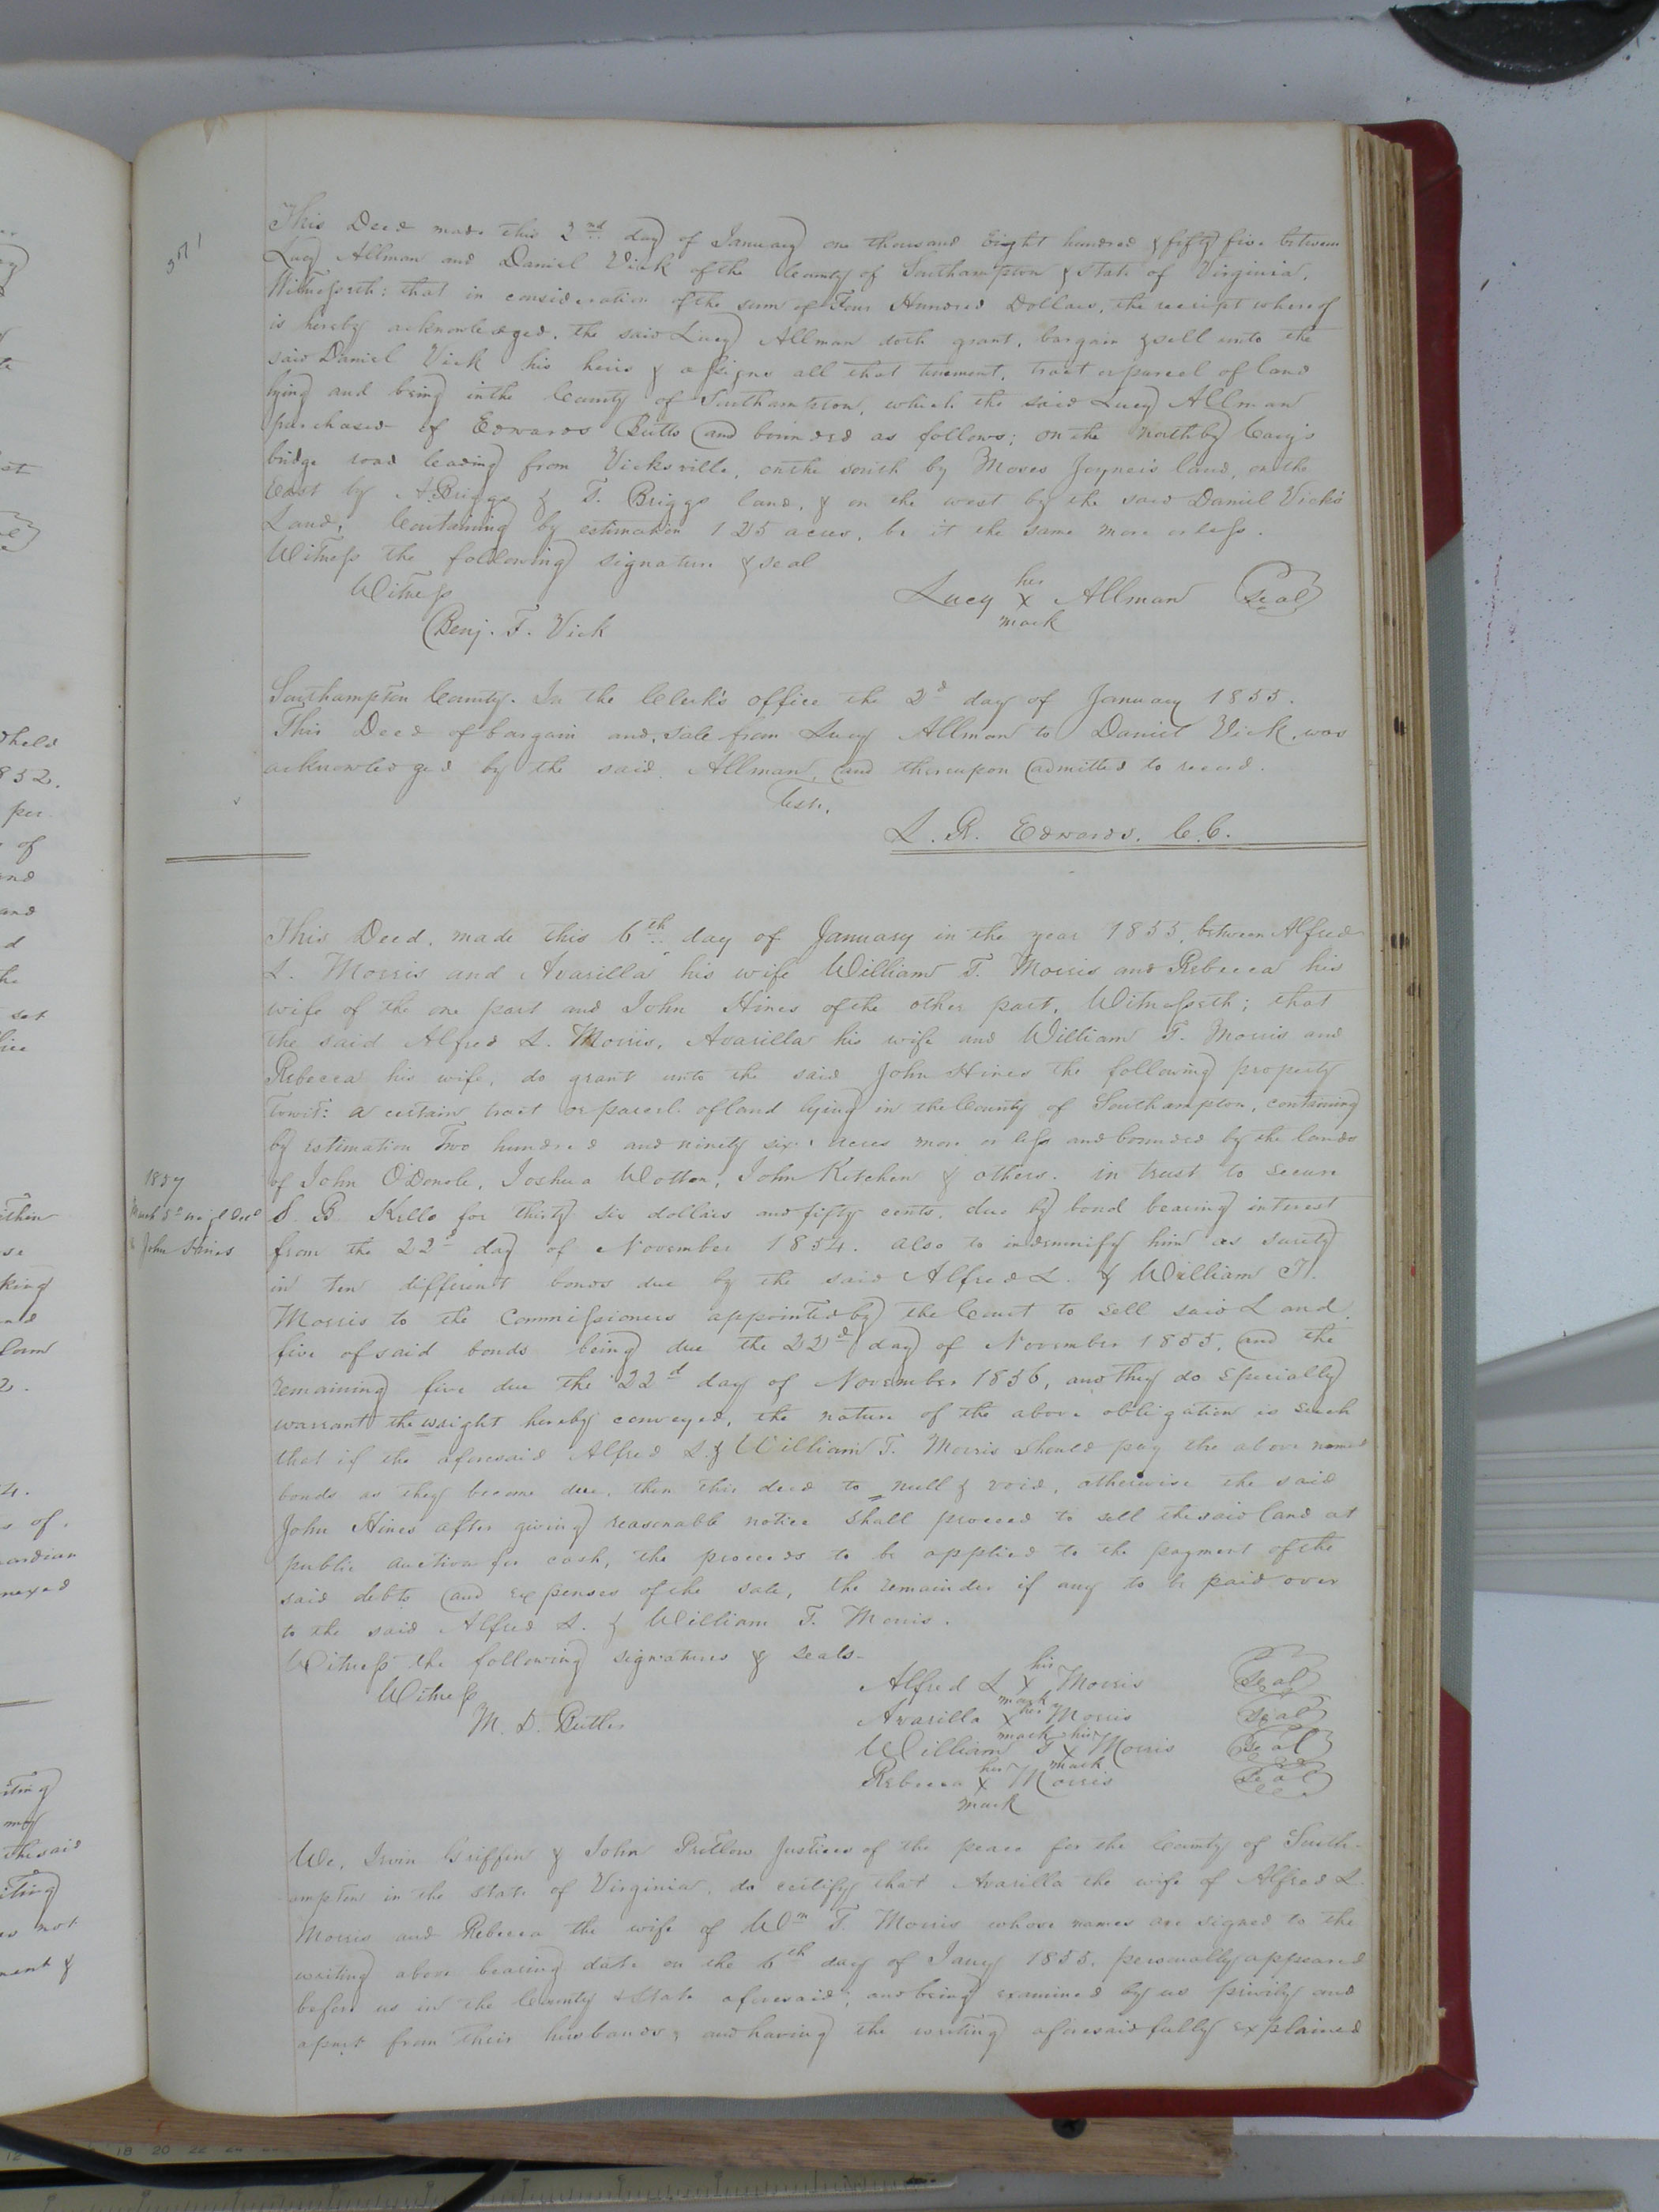 571
This Deed made this 2nd day of January one thousand Eight hundred & fifty five between
Lucy Allman and Daniel Vick of the County of Southampton & State of Virginia,
Witnesseth: that in consideration of the sum of Four Hundred Dollars, the receipt whereof
is hereby acknowledged, the said Lucy Allman doth grant, bargain & sell unto the
said Daniel Vick his heirs & assigns all that tenement, tract or parcel of land
lying and being in the County of Southampton, which the said Lucy Allman
purchased of Edwards Butts and bounded as follows; on the north by Cary's
bridge road leading from Vicksville, on the south by Moses Joyner's land, on the
East by A. Briggs & T. Briggs land, & on the west by the said Daniel Vick's
Land, Containing by estimation 125 acres, be it the same more or less.
Witness the following signature & seal
Witness
Lucy her X mark Allman Seal
Benj. F. Vick
Southampton County. In the Clerk's office the 2d day of January 1855.
This Deed of bargain and sale from Lucy Allman to Daniel Vick, was
acknowledged by the said Allman, and thereupon admitted to record.
Teste,
L. R. Edwards, C.C.
This Deed, made this 6th day of January in the year 1855, between Alfred
L. Morris and Avarilla his wife William T. Morris and Rebecca his
wife of the one part and John Hines of the other part, Witnesseth; that
the said Alfred L. Morris, Avarilla his wife and William T. Morris and
Rebecca his wife, do grant unto the said John Hines the following property
Towit: a certain tract or parcel of land lying in the County of Southampton, containing
by estimation Two hundred and ninety six acres more or less and bounded by the lands
of John O'Donole, Joshua Wotton, John Kitchen & others. in trust to secure
S. B. Kello for thirty six dollars and fifty cents, due by bond bearing interest
from the 22d day of November 1854. also to indemnify him as surety
in ten different bonds due by the said Alfred L. & William T.
Morris to the Commissioners appointed by the Court to sell said Land
five of said bonds being due the 22d day of November 1855, and the
remaining five due the 22d day of November 1856, and they do Specially
warrant the wright hereby conveyed, the nature of the above obligation is such
that if the aforesaid Alfred L & William T. Morris should pay the above named
bonds as they become due, then this deed to null & void, otherwise the said
John Hines after giving reasonable notice shall proceed to sell the said land at
public auction for cash, the proceeds to be applied to the payment of the
said debts and expenses of the sale, the remainder if any to be paid over
to the said Alfred L. & William T. Morris.
Witness the following signatures & seals.
1857
March 5th
John Hines
Witness
M. D. Butler
Alfred L his X mark Morris Seal
Avarilla her X mark Morris Seal
William T his X mark Morris Seal
Rebecca her X mark Morris Seal
We, Irvin Griffin & John Pretlow Justices of the peace for the County of South-
ampton in the State of Virginia, do certify that Avarilla the wife of Alfred L.
Morris and Rebecca the wife of Wm T. Morris whose names are signed to the
writing above bearing date on the 6th day of Jany 1855, personally appeared
before us in the County & State aforesaid, and being examined by us privily and
apart from their husbands, and having the writing aforesaid fully explained